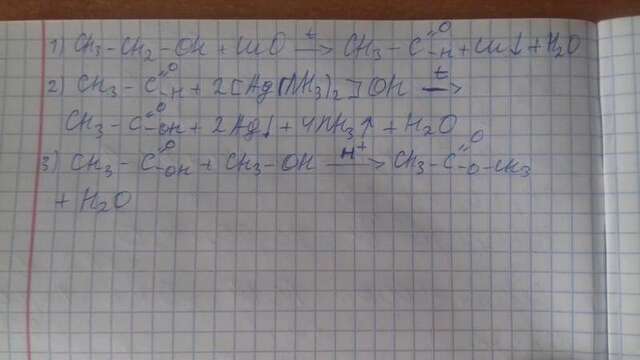 1) CH3-CH2-OH + CuO t→ CH3-C=O-H + Cu↓ + H2O
2) CH3-C=O-H + 2[Ag(NH3)2]OH t→
CH3-C=O-OH + 2Ag↓ + 4NH3↑ + H2O
3) CH3-C=O-OH + CH3-OH H+→ CH3-C=O-O-CH3
+ H2O